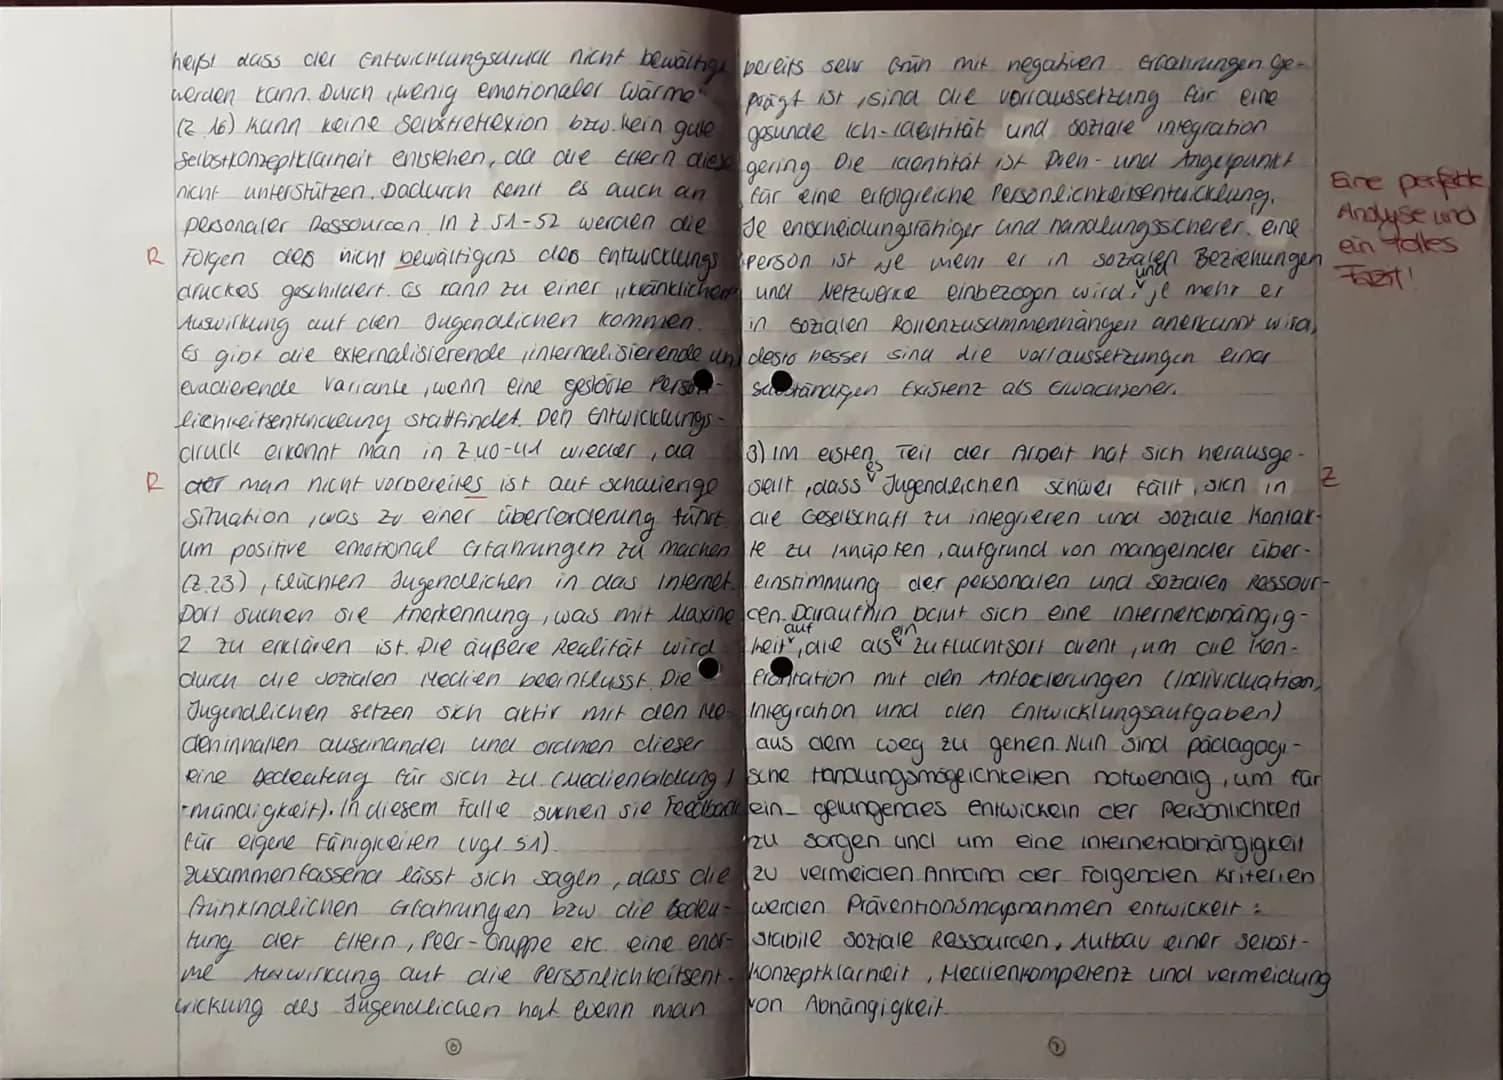 heißt dass der Entwicklungsdruck nicht bewältigt
werden kann. Durch „wenig emotionaler Wärme"
(Z 16) kann keine Selbstreflexion bzw. kein gute
Selbstkonzeptklarheit entstehen, da die Eltern diese
nicht unterstützen. Dadurch fehlt es auch an
personaler Ressourcen. In Z 51-52 werden die
R Folgen des nicht bewältigens des Entwicklungs
druckes geschildert. Es kann zu einer „kränklichen"
Auswirkung auf den Jugendlichen kommen.
Es gibt die externalisierende, internalisierende und
evadierende Variante, wenn eine gestörte Persön-
lichkeitsentwicklung stattfindet. Den Entwicklungs-
druck erkennt man in Z 40-41 wieder, da
R man nicht vorbereites ist auf schwierige
Situation, was zu einer überforderung führt.
um positive emotional Erfahrungen zu machen
(Z.23), flüchten Jugendlichen in das Internet.
Dort suchen sie Anerkennung, was mit Maxime
2 zu erklären ist. Die äußere Realität wird
durch die sozialen Medien beeinflusst. Die
Jugendlichen setzen sich aktiv mit den Me-
dieninhalten auseinander und ordnen dieser
eine Bedeuteng für sich zu (Medienbildung/
-mündigkeit). In diesem Falle suchen sie Feedback
für eigene Fähigkeiten (vgl. 51).
Zusammenfassend lässt sich sagen, dass die
frühkindlichen Erfahrungen bzw. die Bedeu-
tung der Eltern, Peer-Gruppe etc. eine enor-
me Auswirkung auf die Persönlichkeitsent-
wicklung des Jugendlichen hat. Wenn man
6
bereits sehr früh mit negativen Erfahrungen ge-
prägt ist, sind die vorraussetzung für eine
gesunde Ich-Identität und soziale integration
gering. Die Identität ist Dreh- und Angelpunkt
für eine erfolgreiche Persönlichkeitsentwicklung.
Je enscheidungsfähiger und handlungssicherer eine
Person ist je mehr er in sozialen Beziehungen
und Netzwerke einbezogen wird, und je mehr er
in sozialen Rollenzusammenhängen anerkannt wird,
desto besser sind die vorraussetzungen einer
selbständigen Existenz als Erwachsener.
Eine perfekte
Analyse und
ein tolles
Fazit!
3) Im ersten Teil der Arbeit hat sich herausge-
stellt, dass es Jugendlichen schwer fällt, sich in Z
die Gesellschaft zu integrieren und soziale Kontak-
te zu knüpfen, aufgrund von mangelnder über-
einstimmung der personalen und sozialen Ressour-
cen. Daraufhin baut sich eine Internetabhängig-
keit auf, die als ein Zufluchtsort dient, um die Kon-
frontation mit den Anforderungen (Individuation,
Integration und den Entwicklungsaufgaben)
aus dem weg zu gehen. Nun sind pädagogi-
sche Handlungsmöglichkeiten notwendig, um für
ein gelungendes Entwickeln der Persönlichkeit
zu sorgen und um eine internetabhängigkeit
zu vermeiden. Anhand der Folgenden Kriterien
werden Präventionsmaßnahmen entwickelt:
stabile soziale Ressourcen, Aufbau einer Selbst-
konzeptklarheit, Medienkompetenz und vermeidung
von Abhängigkeit.
7